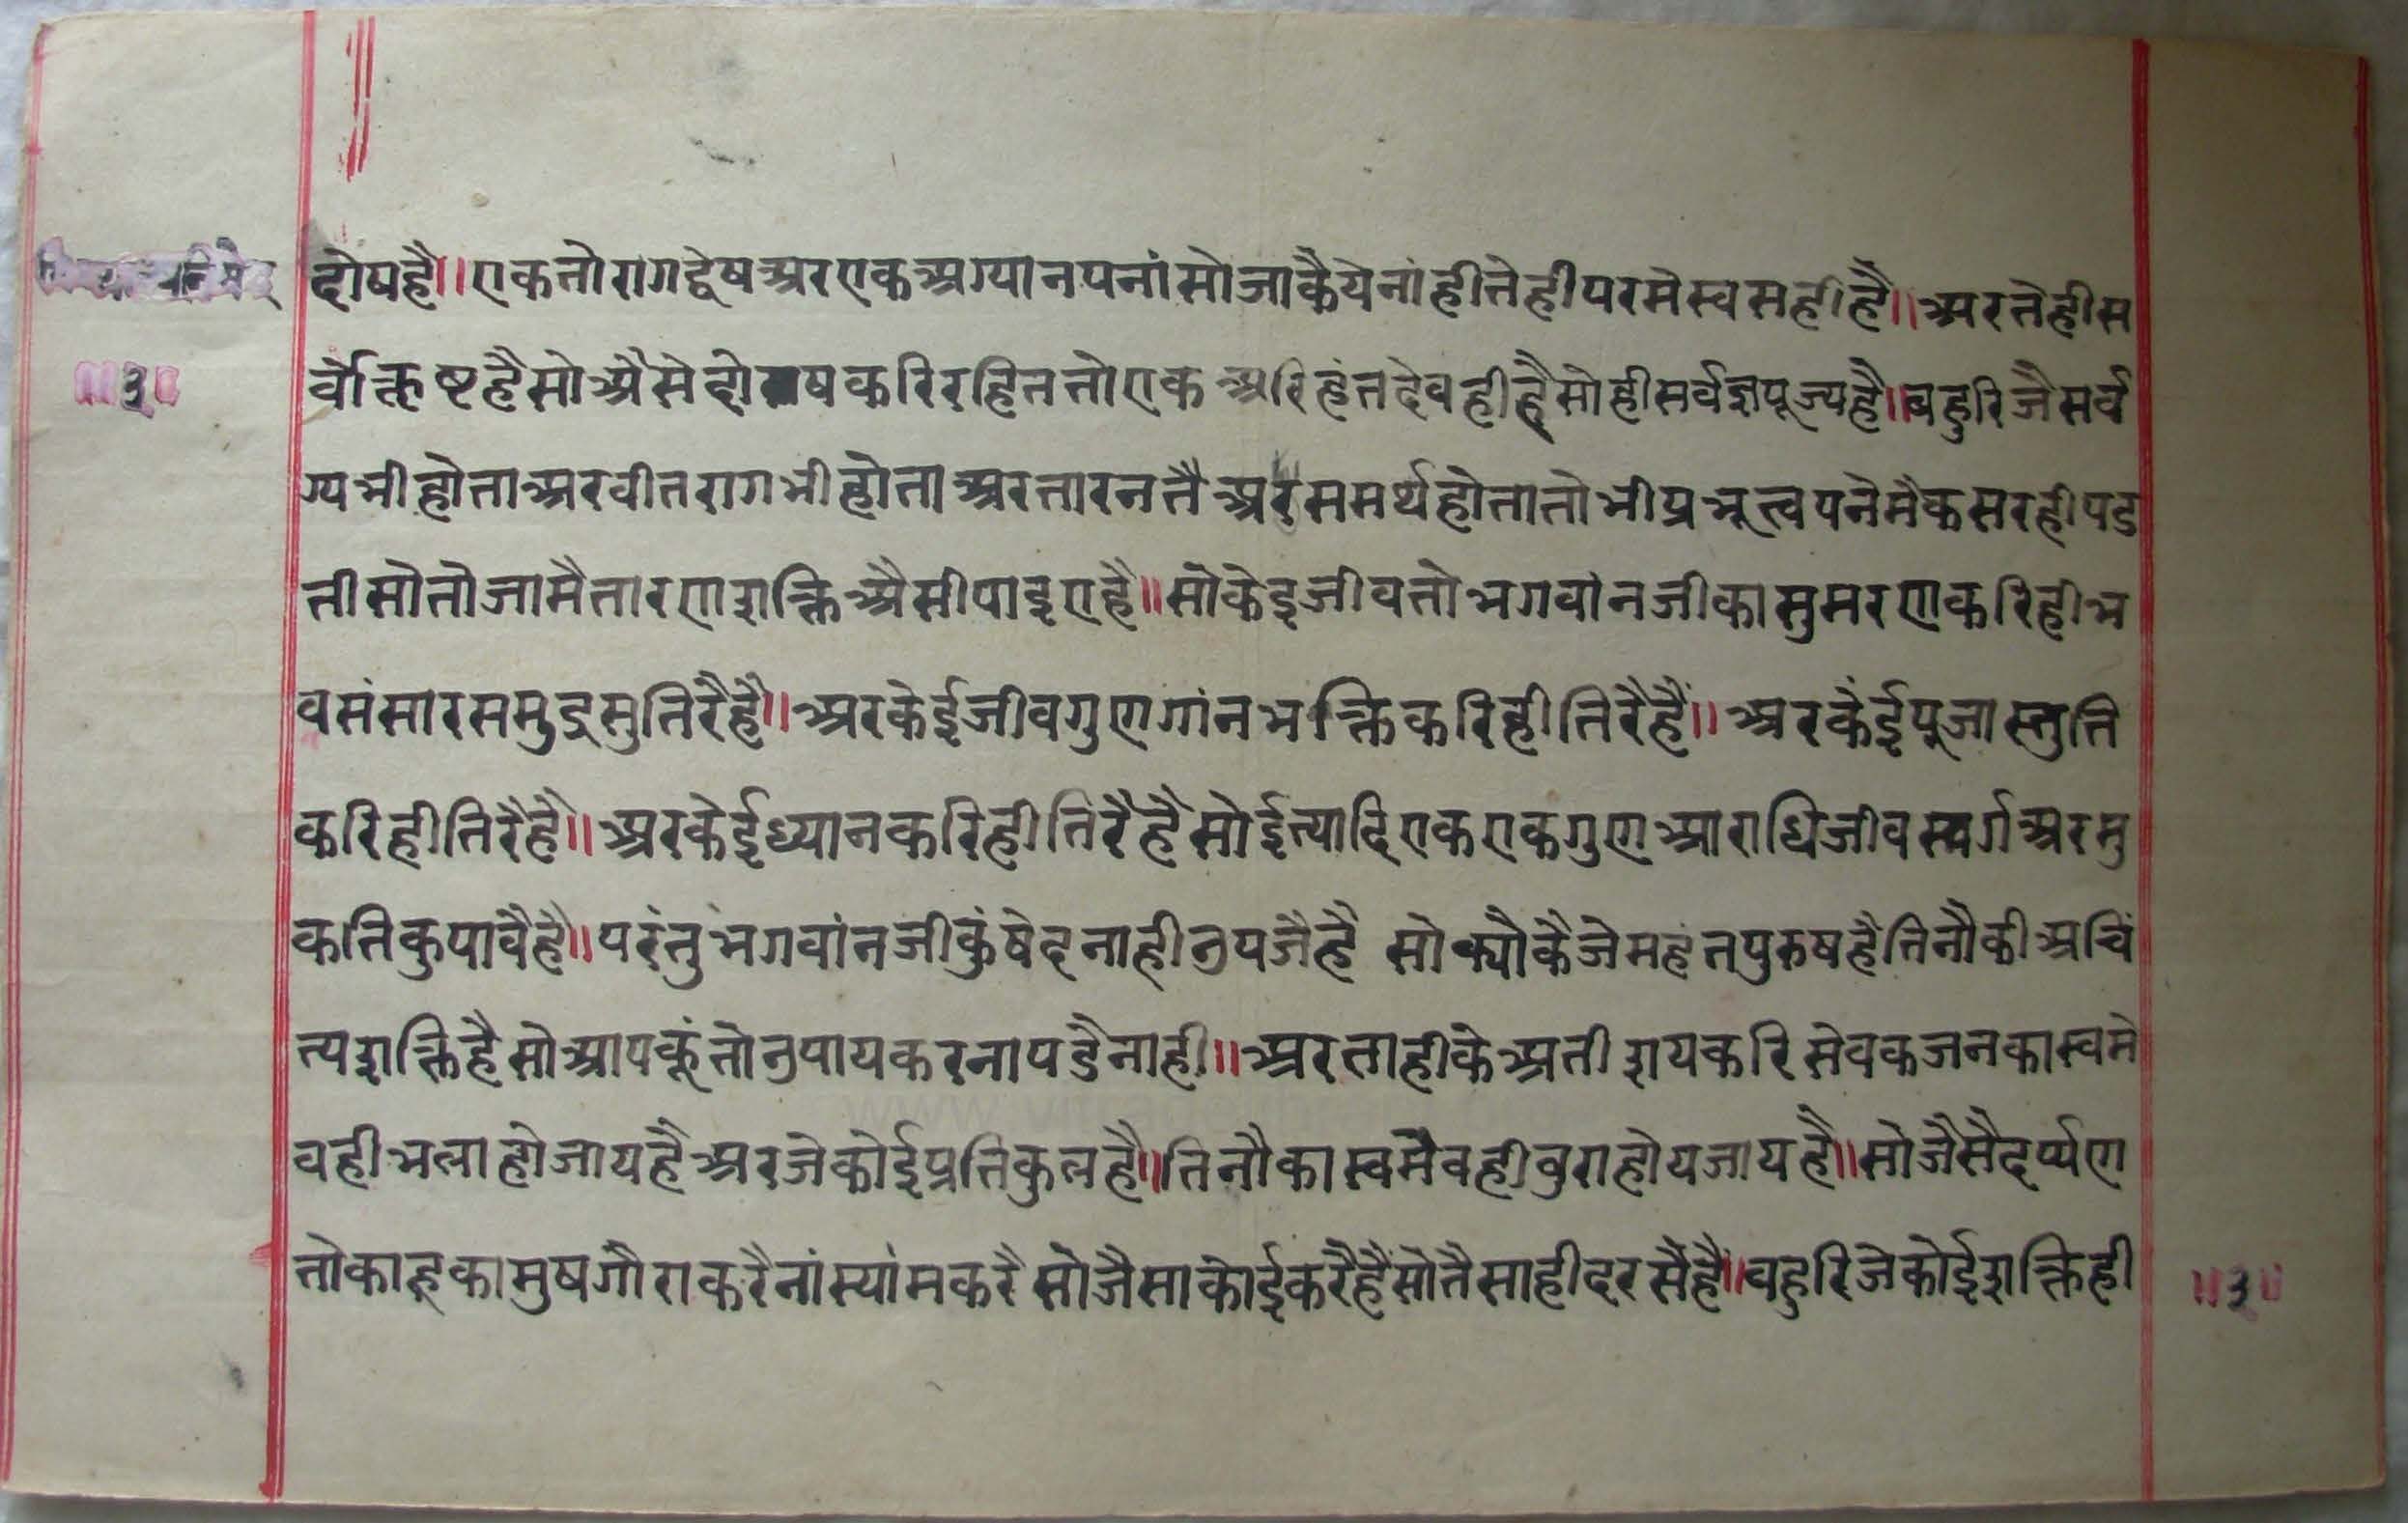 दोषहै॥एकतोरागद्वेषअरएकअग्यानपनांसोजाकैयेनांहीतेहीपरमेस्वसहीहै॥अरतेहीस
॥३॥
र्वोक्तिष्टहैसोअैसेदोषकरिरहिततोएकअरिहंतदेवहीहैसोहीसर्वज्ञपूज्यहै॥बहुरिजैसर्व
ग्यभीहोताअरवीतरागभीहोताअरतारनतैअरसमर्थहोतातोभीप्रभूत्वपनेमैकसरहीपड
तीसोतोजामैतारणशक्तिअैसीपाइएहै॥सोकेइजीवतोभगवांनजीकासुमरणकरिहीभ
वसंसारसमुद्रसुतिरैहै॥अरकेईजीवगुणगांनभक्तिकरिहीतिरैहैं॥अरकेंईपूजास्तुति
करिहीतिरैहै॥अरकेईध्यानकरिहीतिरैहैसोईत्यादिएकएकगुणआराधिजीवस्वर्गअरमु
कतिकुपावैहै॥परंतुभगवांनजीकुंषेदनाहीउपजैहै सोक्यौकैजेमहंतपुरुषहैतिनौकीअचिं
त्यशक्तिहैसोआपकूंतोउपायकरनापडैनाही॥अरताहीकेअतीशयकरिसेवकजनकास्वमे
वहीभलाहोजायहैअरजेकोईप्रतिकुलहै॥तिनौकास्वमेवहीबुराहोयजायहै॥सोजैसैदर्प्पण
तोकाहूकामुषगौराकरैनांस्यांमकरै सोजैसाकोईकरैहैंसोतैसाहीदरसैहै॥बहुरिजेकोईशक्तिही
॥३॥